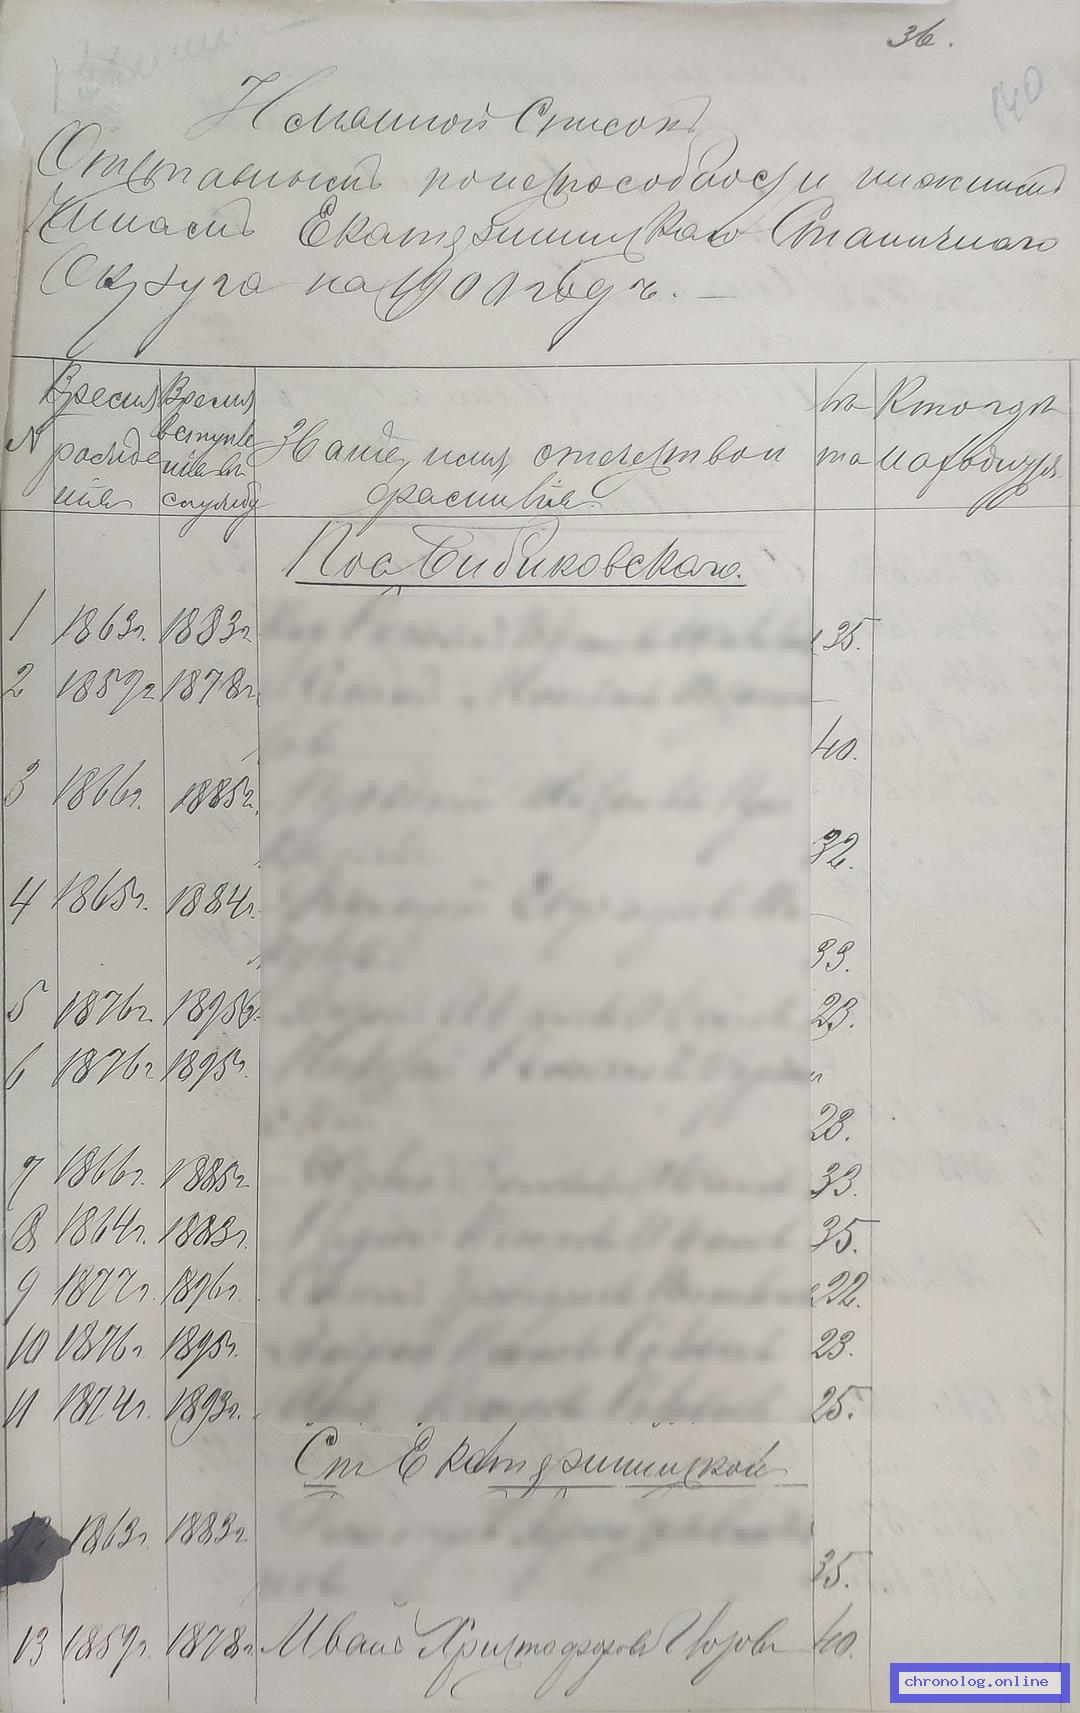 36.
140
Имянной Списокъ
Отставнымъ понеспособности нижнимъ
Чинамъ Екатерининскаго Станичнаго
Округа на 1901 годъ. —
N Время рожденія Время вступленія въ службу Званіе, имя, отчество и фамилія. Кто гдѣ находится
Пос Бибиковскаго.
1 1863г. 1883г 35.
2 1859г 1878г. 40.
3 1866г. 1885г. 32.
4 1865г. 1884г. 33.
5 1876г. 1895г. 23.
6 1876г 1895г. 23.
7 1866г. 1885г 33.
8 1864г. 1883г. 35.
9 1877г. 1896г. 22.
10 1876г. 1895г. 23.
11 1874г. 1893г. 25.
Ст Екатерининской
12 1863г. 1883г 35.
13 1859г. 1878г. Иванъ Христофоровъ 40.
chronolog.online